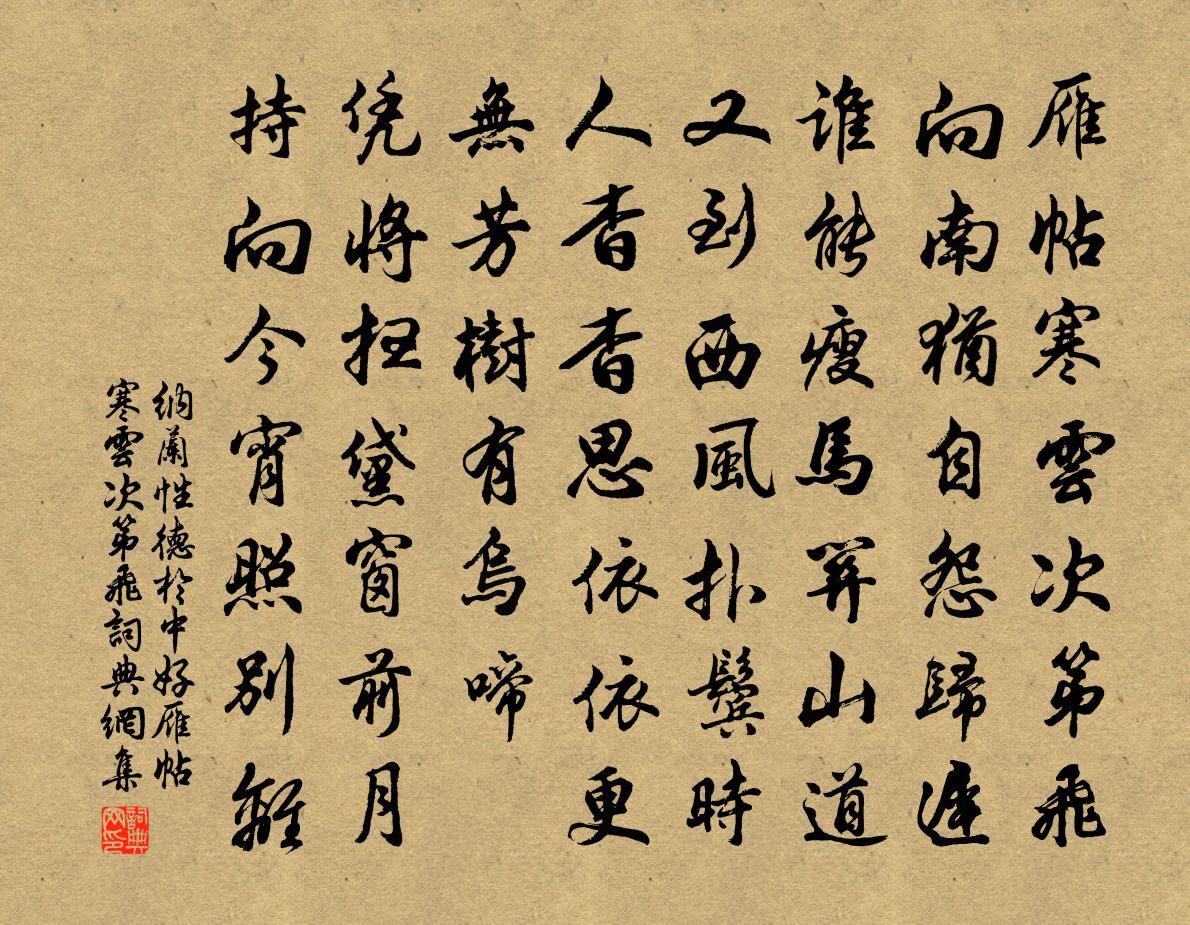 雁帖寒雲次第飛
向南猶自怨歸遲
誰能瘦馬關山道
又到西風扑鬢時
人杳杳思依依更
無芳樹有烏啼
凭將扫黛窗前月
持向今宵照別離
納蘭性德於中好雁帖
寒雲次第飛詞典網集
詞典网印